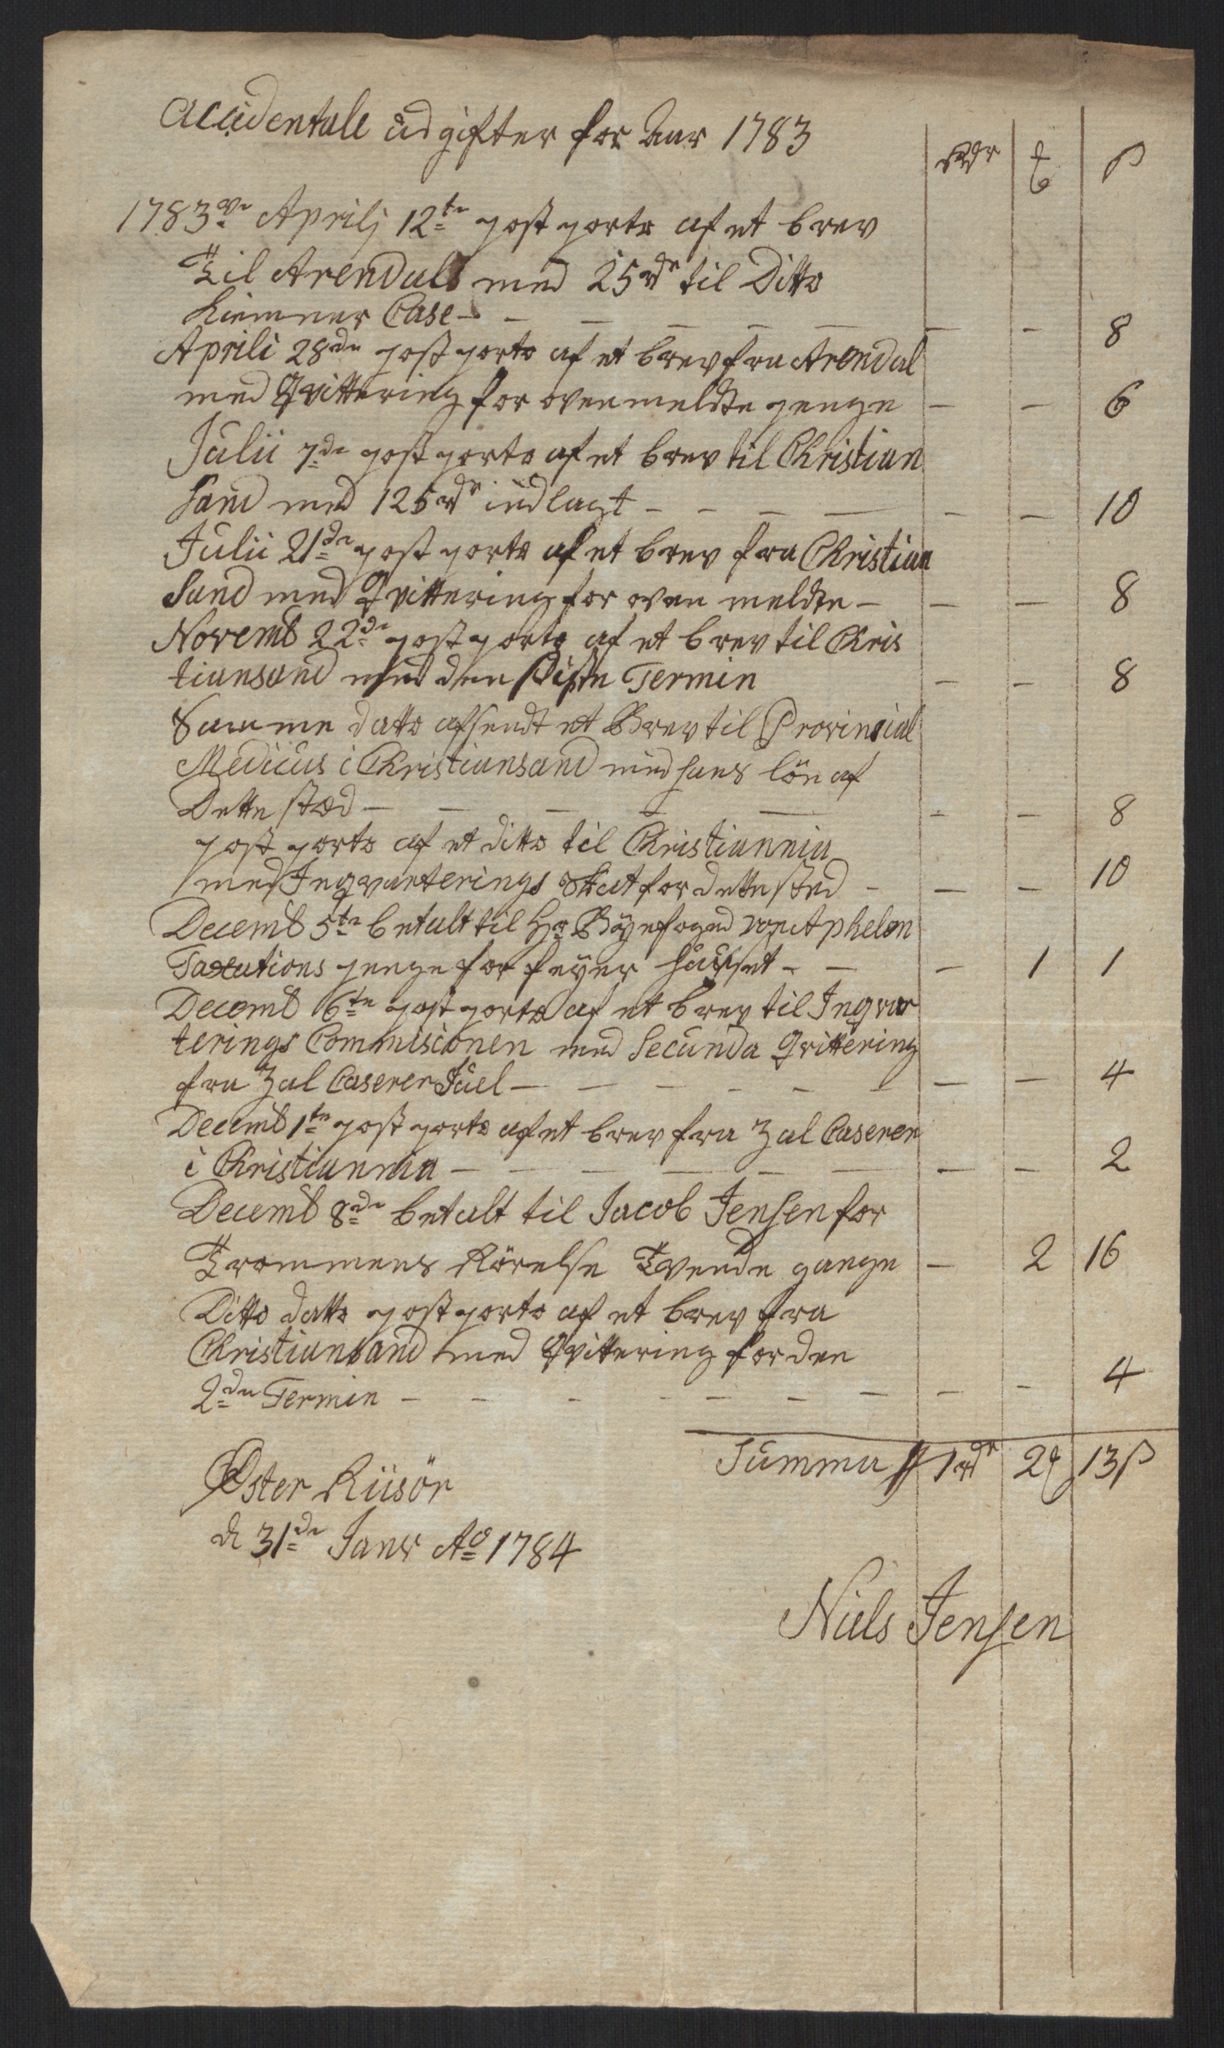 Accidentale udgifter for Aar 1783
Rdr ₰ ß
1783ve Aprilj 12te post porto af et brev
Til Arendall med 25 rdr til Ditto
Kiemner Case - - - - - - - 8
Aprili 28de post porto af et brev fra Arendal
med Qvittering for ovenmeldte penge - - 6
Julii 7de post porto af et brev til Christian
sand med 125 rdr indlagt - - - - - - 10
Julii 21de post porto af et brev fra Christian
sand med Qvittering for oven meldte - - - 8
Novemb 22de post porto af et brev til Chris
tiansand med den Sidste Termin - - 8
Samme dato afsendt et Brev til Provincial
Medicus i Christiansand med hans lön af
Dette stæd - - - - - - 8
post porto af et ditto til Christiannia
med Inqvarterings Skat for dette stæd - - - 10
Decemb 5te betalt til Hr Byefoged von Aphelen
Taxations penge for feyer huuset - - - 1 1
Decemb 6te post porto af et brev til Inqvar
terings Commisionen med Secunda Qvittering
fra Zal Caserer Juel - - - - - - - - 4
Decemb 1te post porto af et brev fra Zal Caserer
i Christiannia - - - - - - - - 2
Decemb 8de betalt til Jacob Jensen for
Trommens Rörelse Tvende gange - 2 16
Ditto dato post porto af et brev fra
Christiansand med Qvittering for den
2den Termin - - - - - - - - - 4
Summa 1 rdr 2 ₰ 13 ß
Øster Riisör
d 31de Janr Ao 1784
Niels Jensen